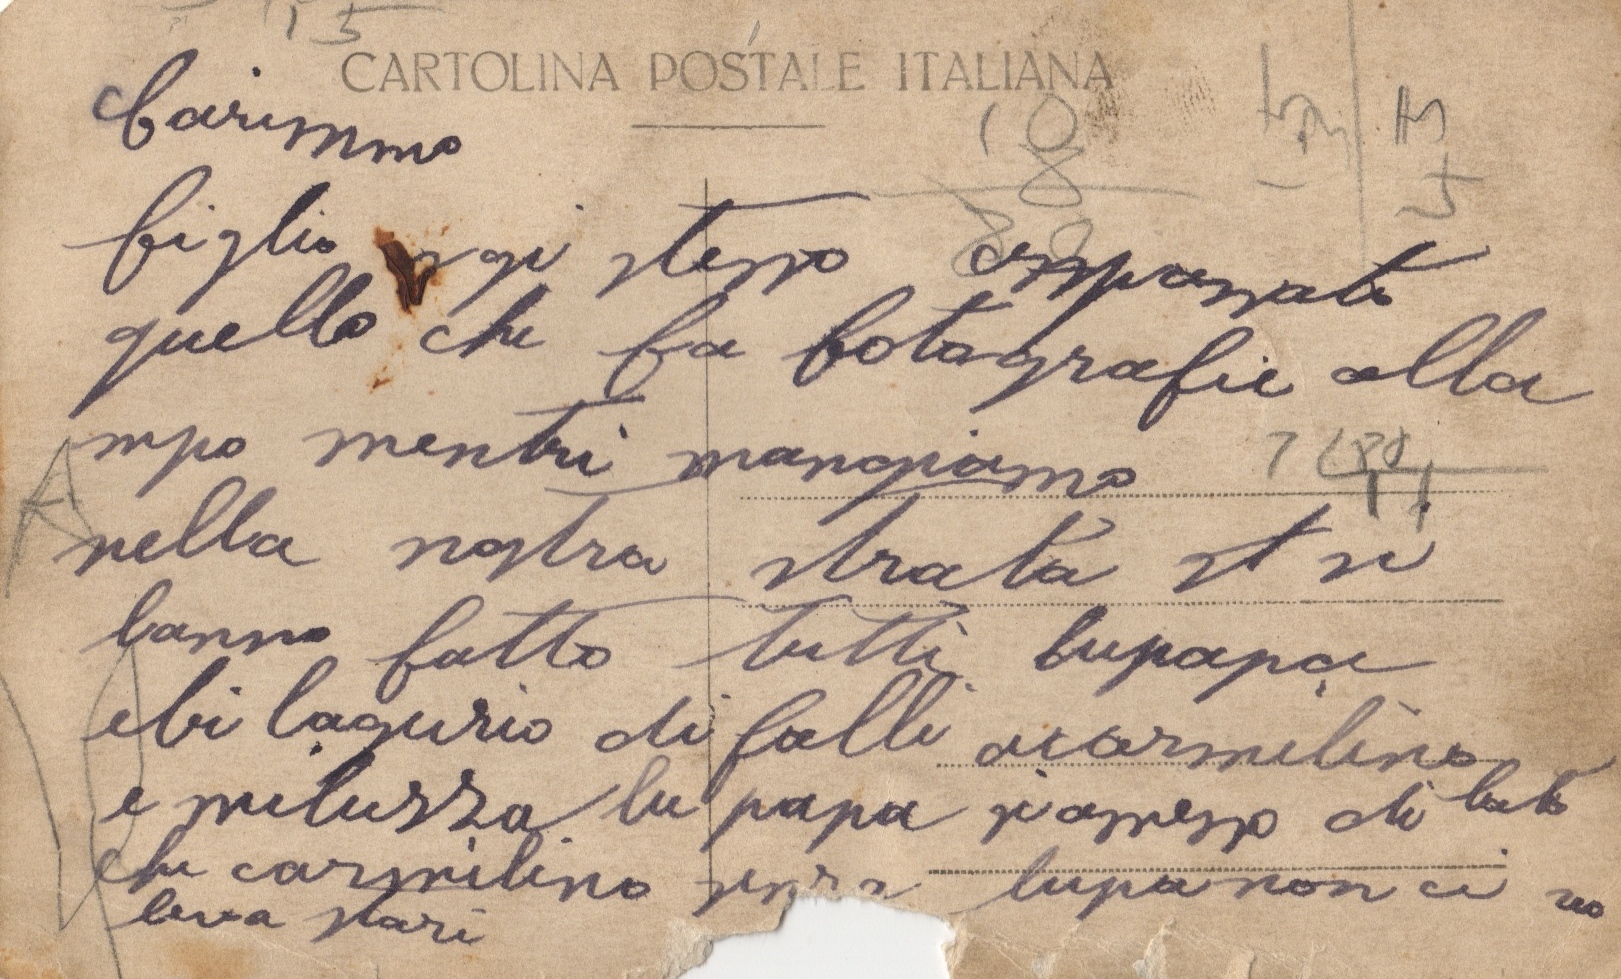 CARTOLINA POSTALE ITALIANA
Carimmo
figlio ogi stesso appassato
quello che fa fotografie alla
mpo mentri mangiamo
nella nostra strata st si
lanno fatto tutti lupapa
di falli acarmilino
e miluzza lu papa siammesso di lato
che carmilino senza lupa non ci vo
leva stari